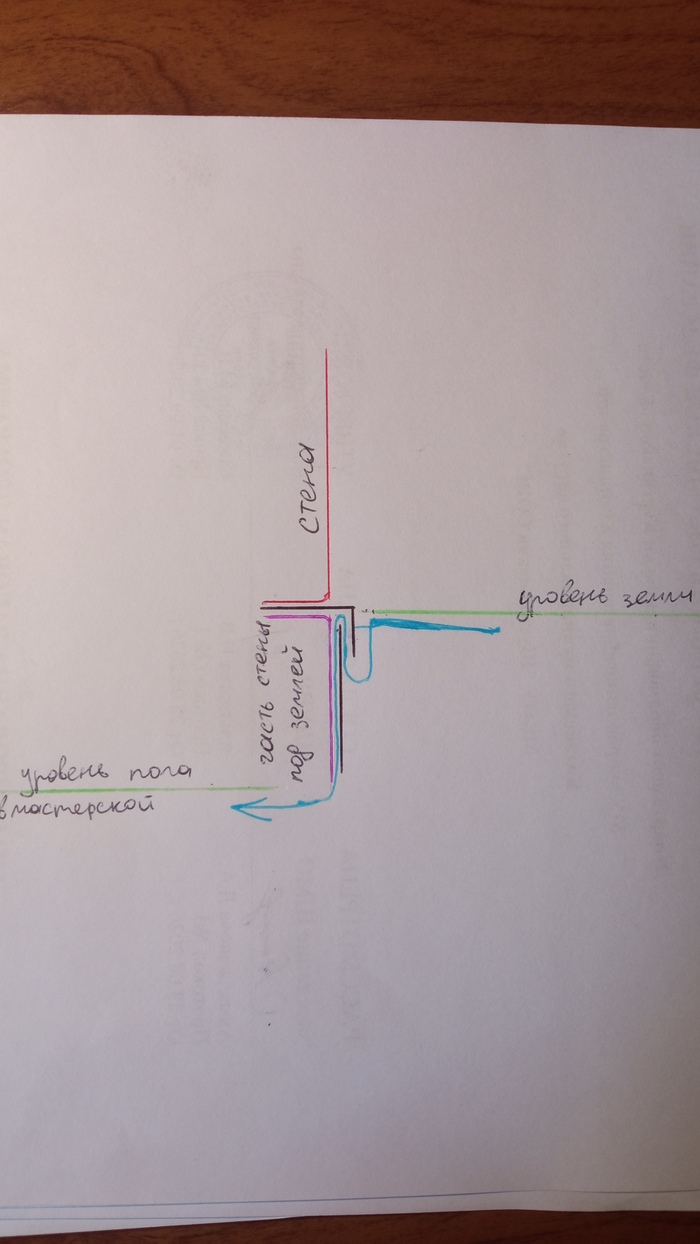 стена
уровень земли
часть стены
под землей
уровень пола
в мастерской